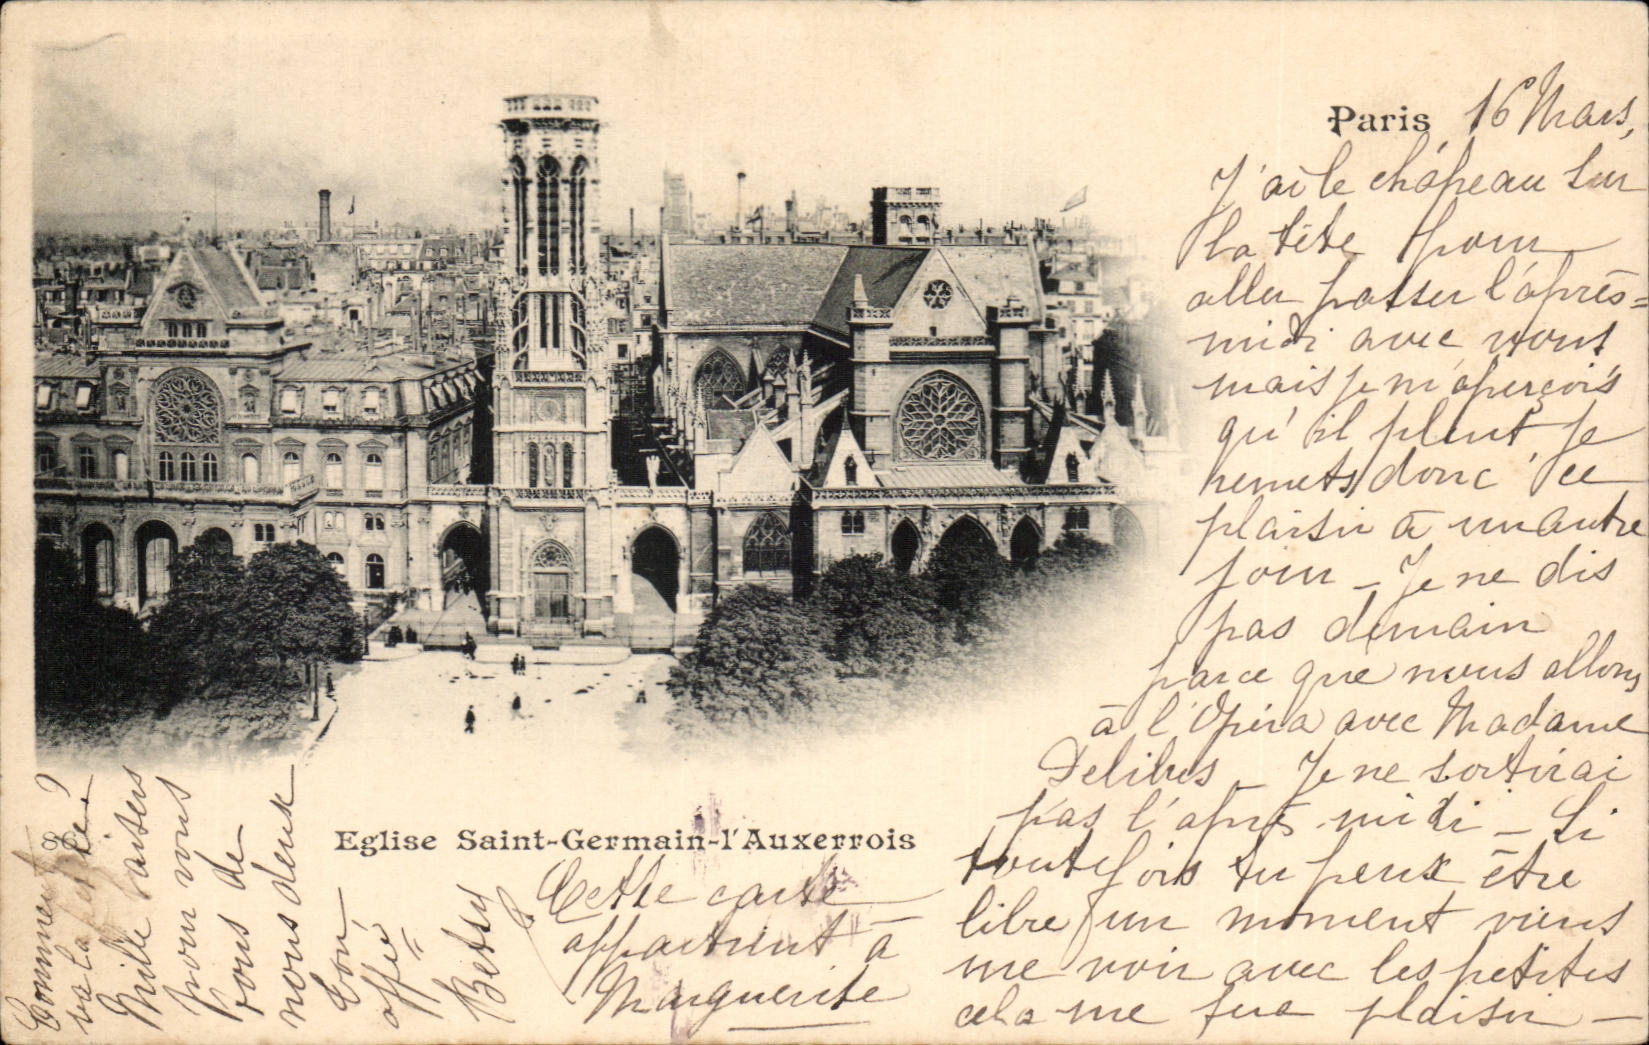 Paris 16 Mars,
J'ai le chapeau sur
la tête pour
aller passer l'après=
midi avec vous
mais je m'aperçois
qu'il pleut je
remets donc ce
plaisir à un autre
jour - Je ne dis
pas demain
parce que nous allons
à l'Opéra avec Madame
Delibes - Je ne sortirai
pas l'après midi - Si
toutefois tu peux être
libre un moment viens
me voir avec les petites
cela me fera plaisir -
Eglise Saint-Germain-l'Auxerrois
Cette carte
appartient à
Marguerite
Comment
va la petite?
Mille baisers
pour vous
tous de
nous deux
Ton
affiée
Betsy